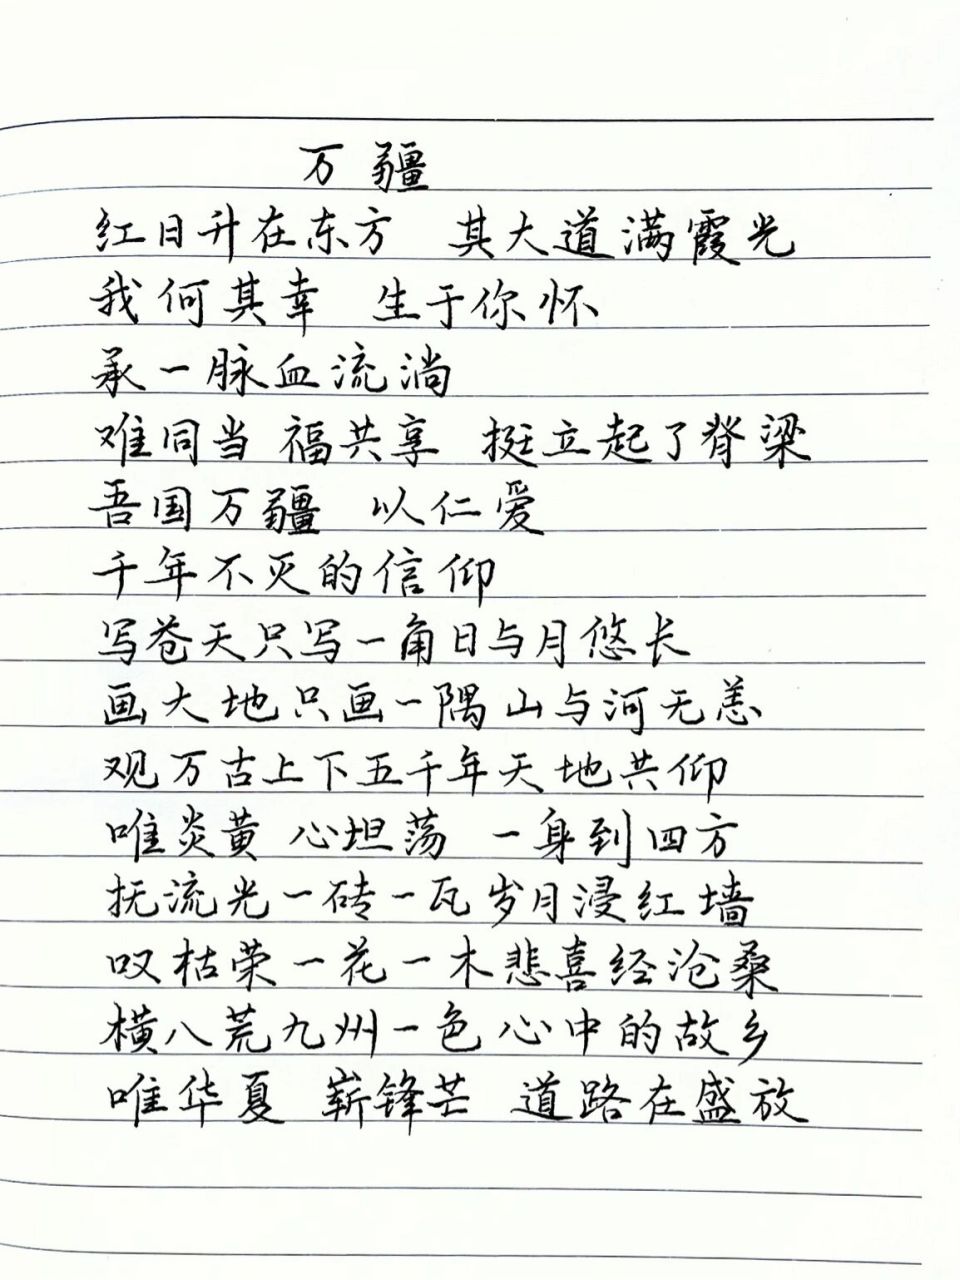 万疆
红日升在东方 其大道满霞光
我何其幸 生于你怀
承一脉血流淌
难同当 福共享 挺立起了脊梁
吾国万疆 以仁爱
千年不灭的信仰
写苍天只写一角日与月悠长
画大地只画一隅山与河无恙
观万古上下五千年天地共仰
唯炎黄 心坦荡 一身到四方
抚流光一砖一瓦岁月浸红墙
叹枯荣一花一木悲喜经沧桑
横八荒九州一色心中的故乡
唯华夏 崭锋芒 道路在盛放